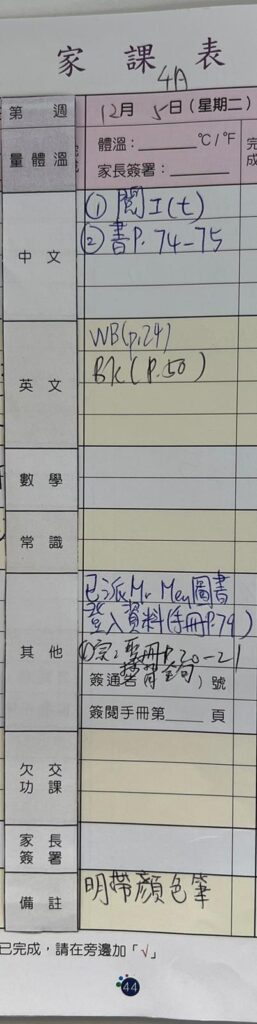 家課表
4A
第 週 12月 5日(星期二)
量體溫 體溫：______℃/℉ 完
家長簽署：______ 成
中文 ① 閱工(七)
② 書P. 74-75
英文 WB(p.24)
BK(P.50)
數學
常識
其他 已派Mr Men圖書
登入資料(手冊P.79)
P.20-21
簽通告 )號
簽閱手冊第____頁
欠交
功課
家長
簽署
備註 明帶顏色筆
已完成，請在旁邊加「√」
44